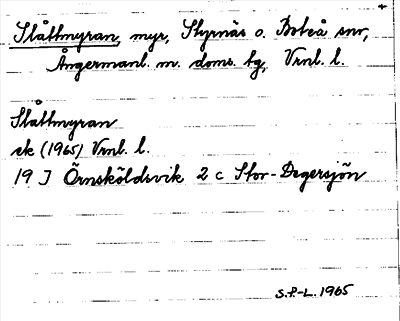 Slåttmyran, myr, Styrnäs o. Boteå snr,
Ångermanl. m. doms. tg, Vrnl. l.
Slåttmyran
ek (1965) Vrnl. l.
19 J Örnsköldsvik 2 c Stor-Degersjön
S.F.-L. 1965